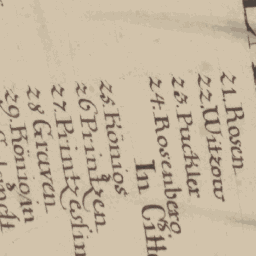 21. Rosen
22. Witzow
23. Puckler
24. Rosenberg.
In Citt
25. Königs
26 Printzen
27. Printzessin
28 Graven
29. Königin